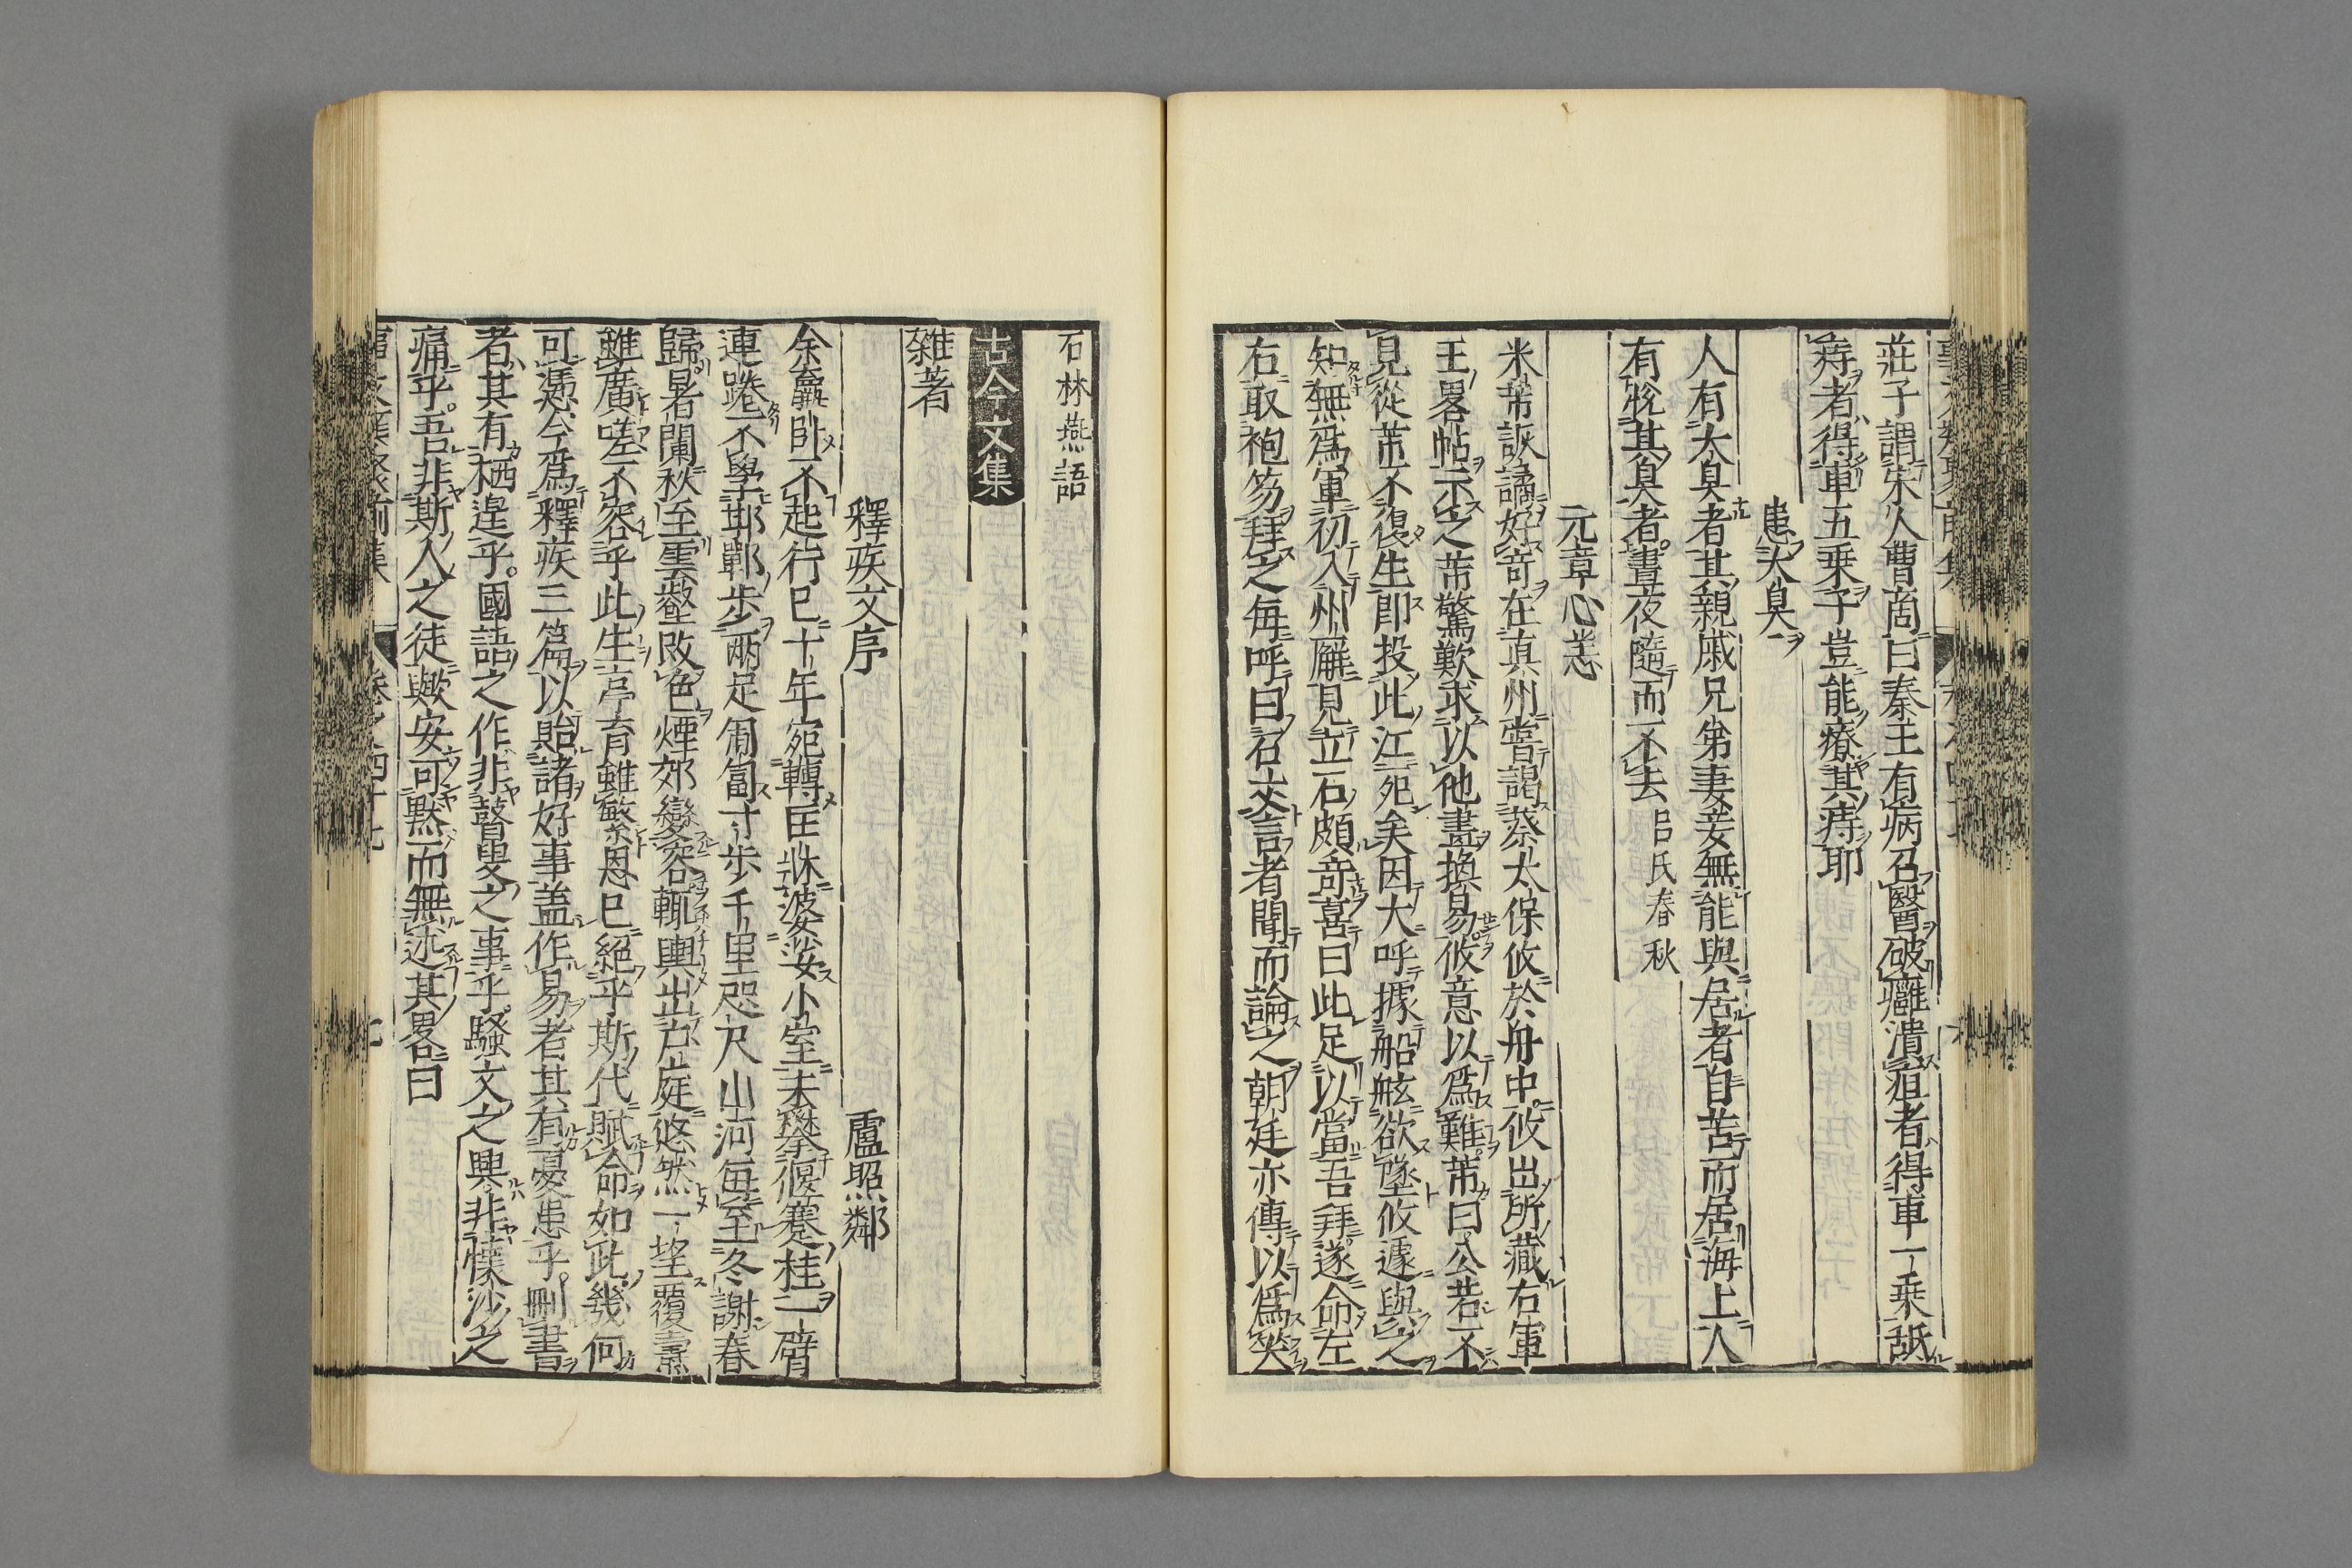 莊子謂宋人曹商曰秦王有病召醫破癰潰痤者得車一乗舐
痔者得車五乗子豈能療其痔耶
患大臭
人有大臭者其親戚兄弟妻妾無能與居者自苦而居海上人
有悦其臭者晝夜隨而不去呂氏春秋
元章心恙
米芾詼譎好奇在真州嘗謁蔡太保攸於舟中攸出所藏右軍
王畧帖示之芾驚歎求以他畫換易攸意以爲難芾曰公若不
見從芾不復生即投此江死矣因大呼據船舷欲墜攸遽與之
知無爲軍初入州廨見立石頗奇喜曰此足以當吾拜遂命左
右取袍笏拜之毎呼曰石丈言者聞而論之朝廷亦傳以爲笑
石林燕語
古今文集
雜著
釋疾文序 盧照鄰
余羸卧不起行已十年宛轉匡牀婆娑小室未攀偃蹇桂一臂
連踡不學邯鄲歩兩足匍匐寸歩千里咫尺山河毎至冬謝春
歸暑闌秋至雲壑改色煙郊變容輒輿出戸庭悠然一望覆燾
雖廣嗟不容乎此生亭育雖繁恩已絕乎斯代賦命如此幾何
可慿今爲釋疾三篇以貽諸好事蓋作易者其有憂患乎刪書
者其有栖遑乎國語之作非瞽叟之事乎騷文之興非懷沙之
痛乎吾非斯人之徒歟安可黙而無述其畧曰